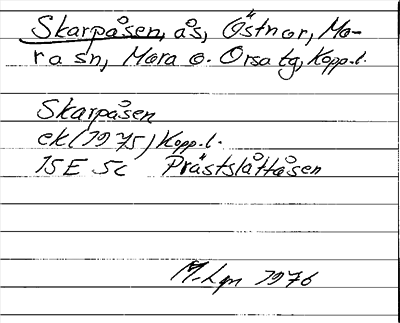 Skarpåsen, ås, Östnor, Mo-
ra sn, Mora o. Orsa tg, Kopp.l.
Skarpåsen
ek (1975) Kopp.l.
15E 5c Prästslåttåsen
M. Lgn 1976